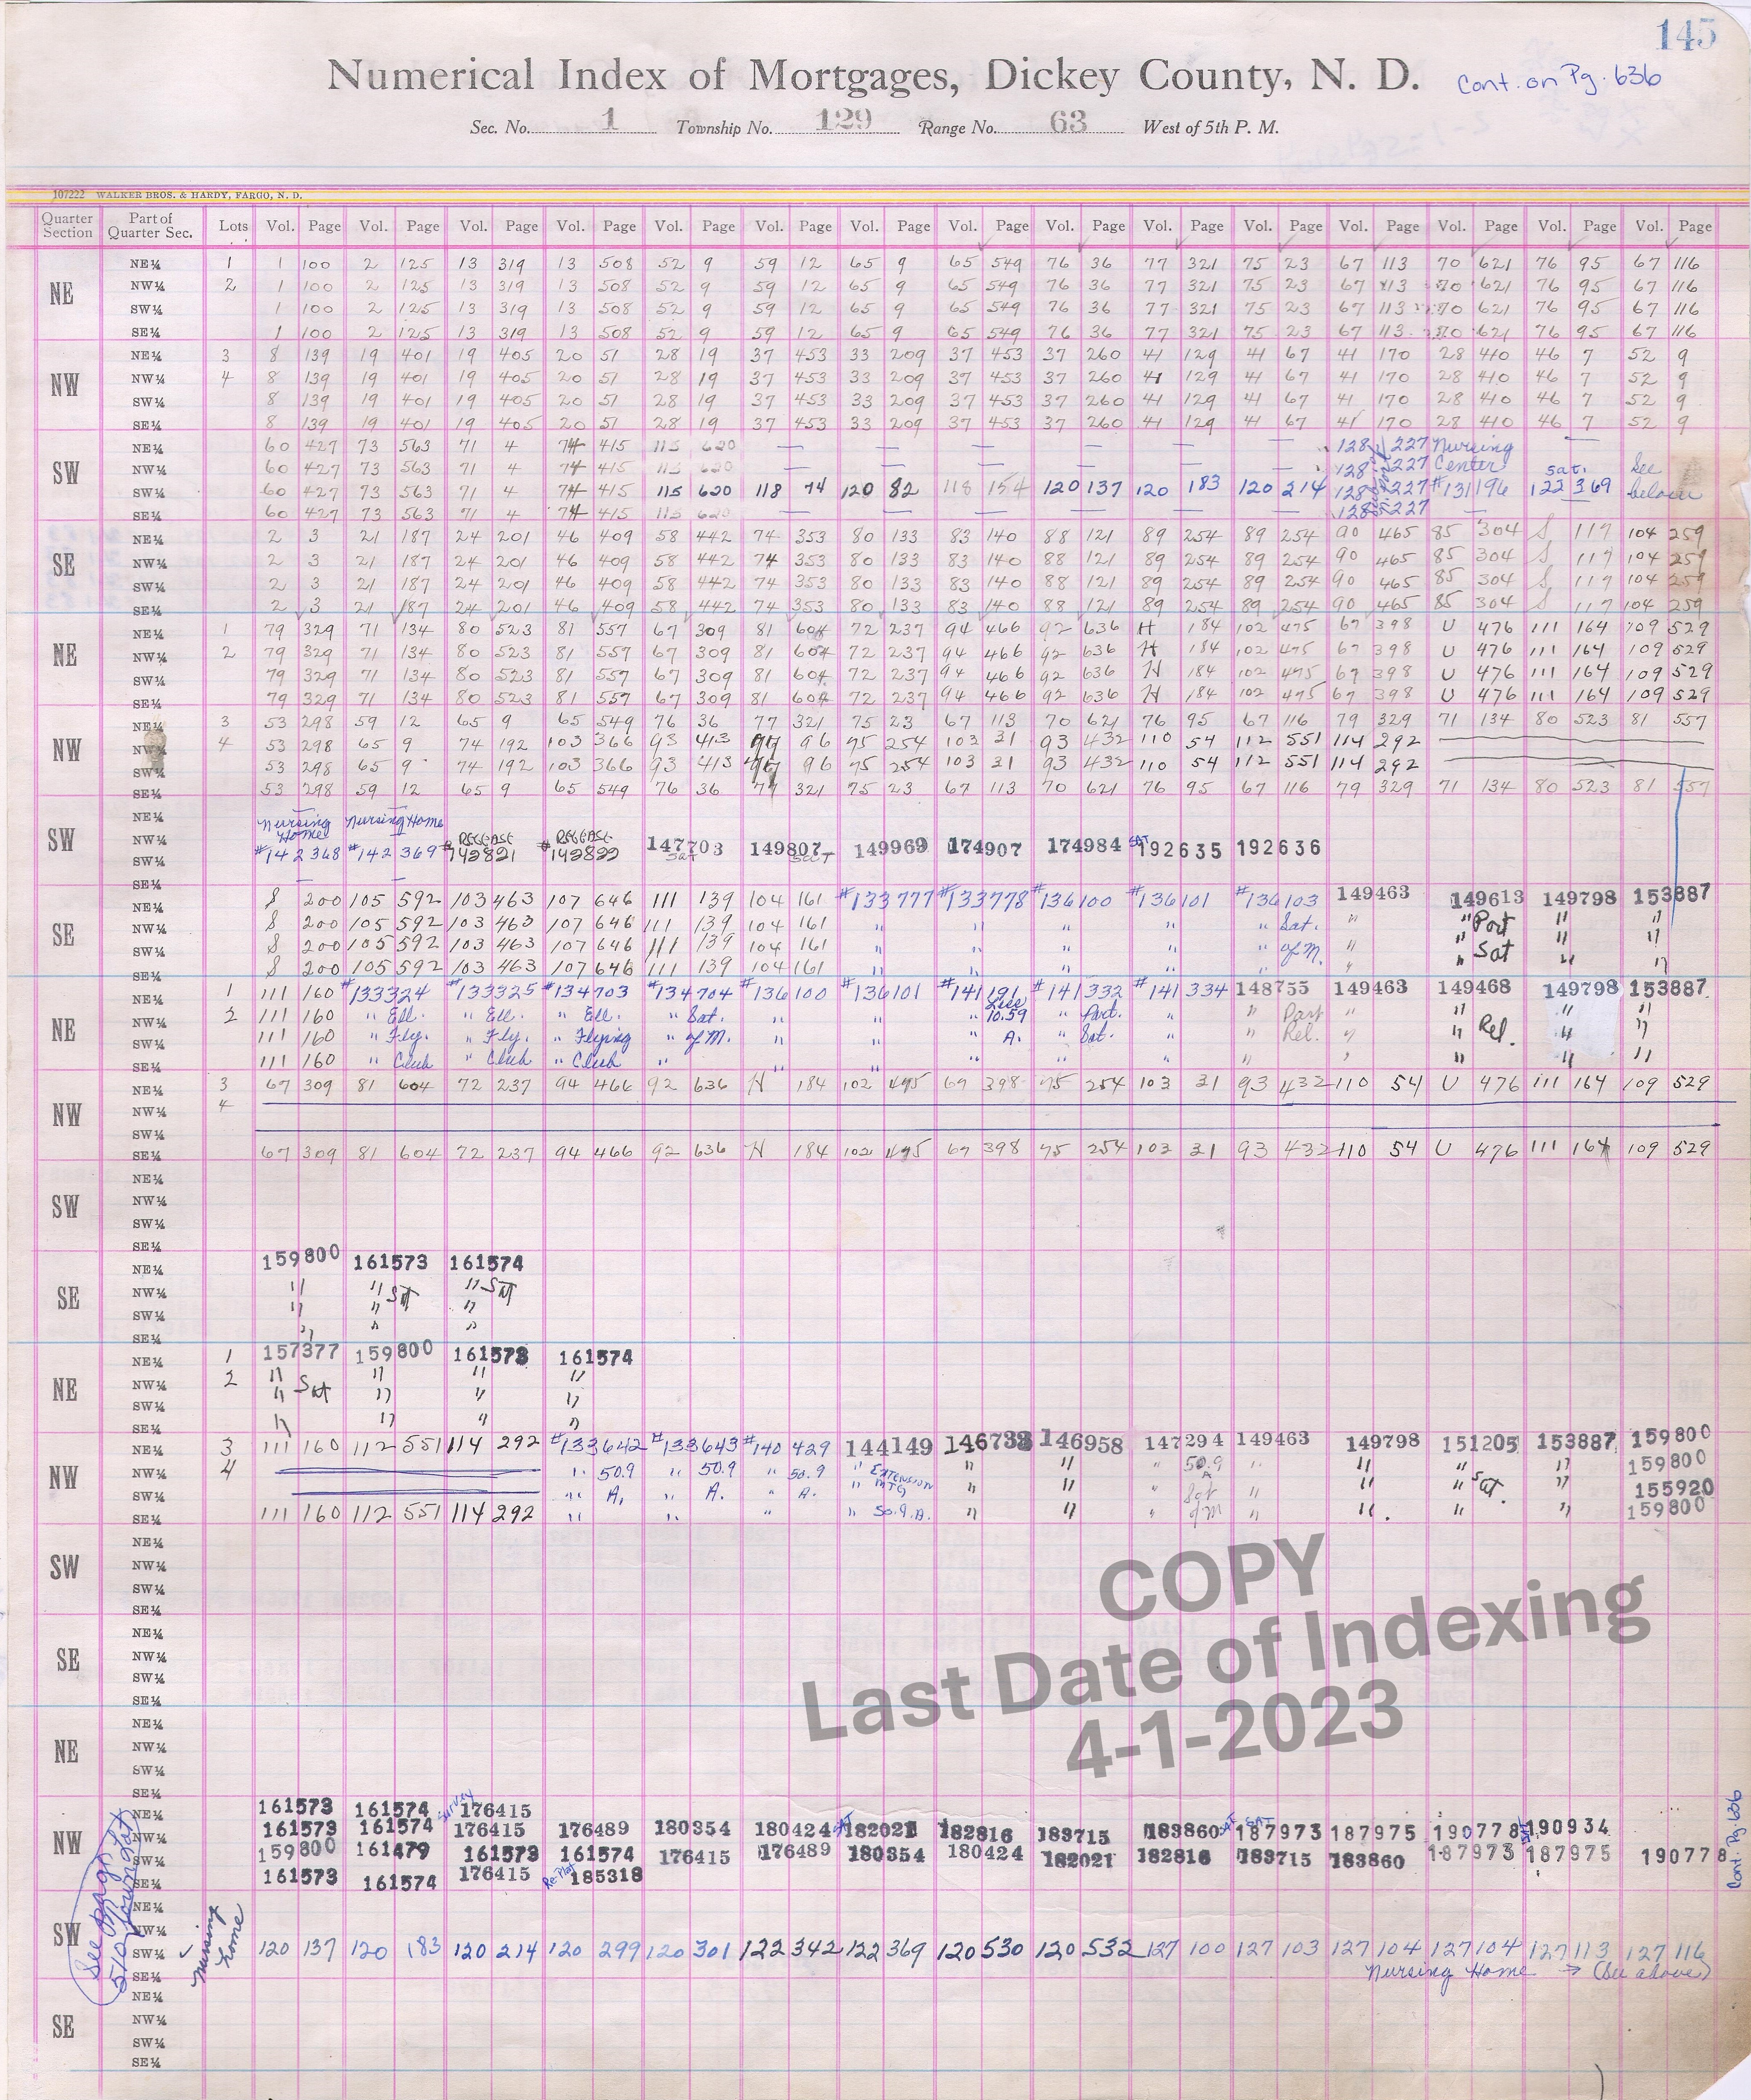 145
Numerical Index of Mortgages, Dickey County, N. D. Cont. on Pg. 636
Sec. No. 1 Township No. 129 Range No. 63 West of 5th P. M.
107222 WALKER BROS. & HARDY, FARGO, N. D.
Quarter Section Part of Quarter Sec. Lots Vol. Page Vol. Page Vol. Page Vol. Page Vol. Page Vol. Page Vol. Page Vol. Page Vol. Page Vol. Page Vol. Page Vol. Page Vol. Page Vol. Page Vol. Page
NE NE¼ 1 1 100 2 125 13 319 13 508 52 9 59 12 65 9 65 549 76 36 77 321 75 23 67 113 70 621 76 95 67 116
NW¼ 2 1 100 2 125 13 319 13 508 52 9 59 12 65 9 65 549 76 36 77 321 75 23 67 113 70 621 76 95 67 116
SW¼ 1 100 2 125 13 319 13 508 52 9 59 12 65 9 65 549 76 36 77 321 75 23 67 113 70 621 76 95 67 116
SE¼ 1 100 2 125 13 319 13 508 52 9 59 12 65 9 65 549 76 36 77 321 75 23 67 113 70 621 76 95 67 116
NW NE¼ 3 8 139 19 401 19 405 20 51 28 19 37 453 33 209 37 453 37 260 41 129 41 67 41 170 28 410 46 7 52 9
NW¼ 4 8 139 19 401 19 405 20 51 28 19 37 453 33 209 37 453 37 260 41 129 41 67 41 170 28 410 46 7 52 9
SW¼ 8 139 19 401 19 405 20 51 28 19 37 453 33 209 37 453 37 260 41 129 41 67 41 170 28 410 46 7 52 9
SE¼ 8 139 19 401 19 405 20 51 28 19 37 453 33 209 37 453 37 260 41 129 41 67 41 170 28 410 46 7 52 9
SW NE¼ 60 427 73 563 71 4 74 415 115 620 — — — — — — 128 227 Nursing —
NW¼ 60 427 73 563 71 4 74 415 115 620 — — — — — — 128 227 Center Sat. See
SW¼ 60 427 73 563 71 4 74 415 115 620 118 74 120 82 118 154 120 137 120 183 120 214 128 227 #131196 122 369 below
SE¼ 60 427 73 563 71 4 74 415 115 620 — — — — — — 128 227 — —
SE NE¼ 2 3 21 187 24 201 46 409 58 442 74 353 80 133 83 140 88 121 89 254 89 254 90 465 85 304 S 117 104 259
NW¼ 2 3 21 187 24 201 46 409 58 442 74 353 80 133 83 140 88 121 89 254 89 254 90 465 85 304 S 117 104 259
SW¼ 2 3 21 187 24 201 46 409 58 442 74 353 80 133 83 140 88 121 89 254 89 254 90 465 85 304 S 117 104 259
SE¼ 2 3 21 187 24 201 46 409 58 442 74 353 80 133 83 140 88 121 89 254 89 254 90 465 85 304 S 117 104 259
NE NE¼ 1 79 329 71 134 80 523 81 557 67 309 81 604 72 237 94 466 92 636 H 184 102 475 67 398 U 476 111 164 109 529
NW¼ 2 79 329 71 134 80 523 81 557 67 309 81 604 72 237 94 466 92 636 H 184 102 475 67 398 U 476 111 164 109 529
SW¼ 79 329 71 134 80 523 81 557 67 309 81 604 72 237 94 466 92 636 H 184 102 475 67 398 U 476 111 164 109 529
SE¼ 79 329 71 134 80 523 81 557 67 309 81 604 72 237 94 466 92 636 H 184 102 475 67 398 U 476 111 164 109 529
NW NE¼ 3 53 298 59 12 65 9 65 549 76 36 77 321 75 23 67 113 70 621 76 95 67 116 79 329 71 134 80 523 81 557
NW¼ 4 53 298 65 9 74 192 103 366 93 413 97 96 95 254 103 31 93 432 110 54 112 551 114 292
SW¼ 53 298 65 9 74 192 103 366 93 413 97 96 95 254 103 31 93 432 110 54 112 551 114 292
SE¼ 53 298 59 12 65 9 65 549 76 36 77 321 75 23 67 113 70 621 76 95 67 116 79 329 71 134 80 523 81 557
SW NE¼ Nursing Home Nursing Home
NW¼ RELEASE RELEASE
SW¼ #142368 #142369 #142821 #142822 147703 SAT 149807 149969 174907 174984 SAT 192635 192636
SE¼ — —
SE NE¼ S 200 105 592 103 463 107 646 111 139 104 161 #133777 #133778 #136100 #136101 #136103 149463 149613 149798 153887
NW¼ S 200 105 592 103 463 107 646 111 139 104 161 " " " " " Sat. " " Part " "
SW¼ S 200 105 592 103 463 107 646 111 139 104 161 " " " " " of M. " " Sat " "
SE¼ S 200 105 592 103 463 107 646 111 139 104 161 " " " " " " " " "
NE NE¼ 1 111 160 #133324 #133325 #134703 #134704 #136100 #136101 #141191 #141332 #141334 148755 149463 149468 149798 153887
NW¼ 2 111 160 " Ell. " Ell. " Ell. " Sat. " " " 10.59 " Part. " " Part " " " "
SW¼ 111 160 " Fly. " Fly. " Flying " of M. " " A. " Sat. " " Rel. " " Rel. " "
SE¼ 111 160 " Club " Club " Club " " " " " " " " " " "
NW NE¼ 3 67 309 81 604 72 237 94 466 92 636 H 184 102 475 67 398 95 254 103 31 93 432 110 54 U 476 111 164 109 529
NW¼ 4
SW¼
SE¼ 67 309 81 604 72 237 94 466 92 636 H 184 102 475 67 398 95 254 103 31 93 432 110 54 U 476 111 164 109 529
SW NE¼
NW¼
SW¼
SE¼
SE NE¼ 159800 161573 161574
NW¼ " " SAT " SAT
SW¼ " " "
SE¼ " " "
NE NE¼ 1 157377 159800 161573 161574
NW¼ 2 " Sat " " "
SW¼ " " " "
SE¼ " " " "
NW NE¼ 3 111 160 112 551 114 292 #133642 #133643 #140429 144149 146738 146958 147294 149463 149798 151205 153887 159800
NW¼ 4 " 50.9 " 50.9 " 50.9 " EXTENSION " " 50.9 " " " " 159800
SW¼ " A. " A. " A. MTG " " " Sat " " " Sat. " 155920
SE¼ 111 160 112 551 114 292 " " " " 50.9.A. " " " of M " " " " 159800
SW NE¼
NW¼
SW¼
SE¼
SE NE¼
NW¼
SW¼
SE¼
COPY
Last Date of Indexing
4-1-2023
NE NE¼
NW¼
SW¼
SE¼
NW NE¼ 161573 161574 Survey 176415
NW¼ 161573 161574 176415 176489 180354 180424 SAT 182021 182816 183715 183860 SAT 187973 SAT 187975 190778 SAT 190934
SW¼ 159800 161479 161573 161574 176415 176489 180354 180424 182021 182816 183715 183860 187973 187975 190778
SE¼ 161573 161574 176415 Re-Plat 185318
Cont. Pg. 636
See page 510
SW NE¼
NW¼ Nursing Home
SW¼ 120 137 120 183 120 214 120 299 120 301 122 342 122 369 120 530 120 532 127 100 127 103 127 104 127 104 127 113 127 116
SE¼ Nursing Home → (See above)
SE NE¼
NW¼
SW¼
SE¼